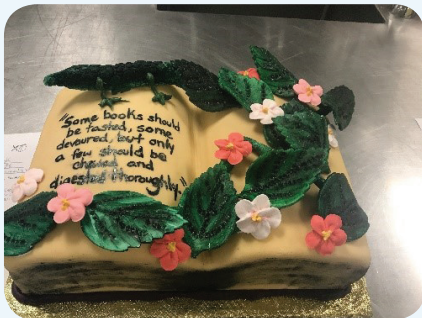 "Some books should
be tasted, some
devoured, but only
a few should be
chewed and
digested thoroughly."